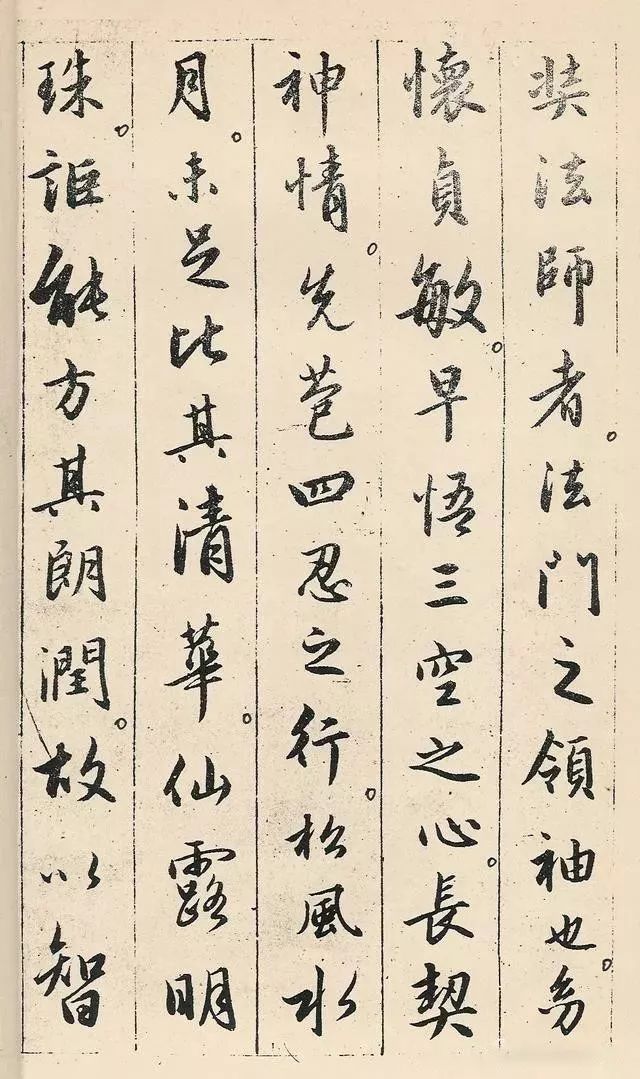 奘法師者。法門之領袖也。幼
懷貞敏。早悟三空之心。長契
神情。先苞四忍之行。松風水
月。未足比其清華。仙露明
珠。詎能方其朗潤。故以智